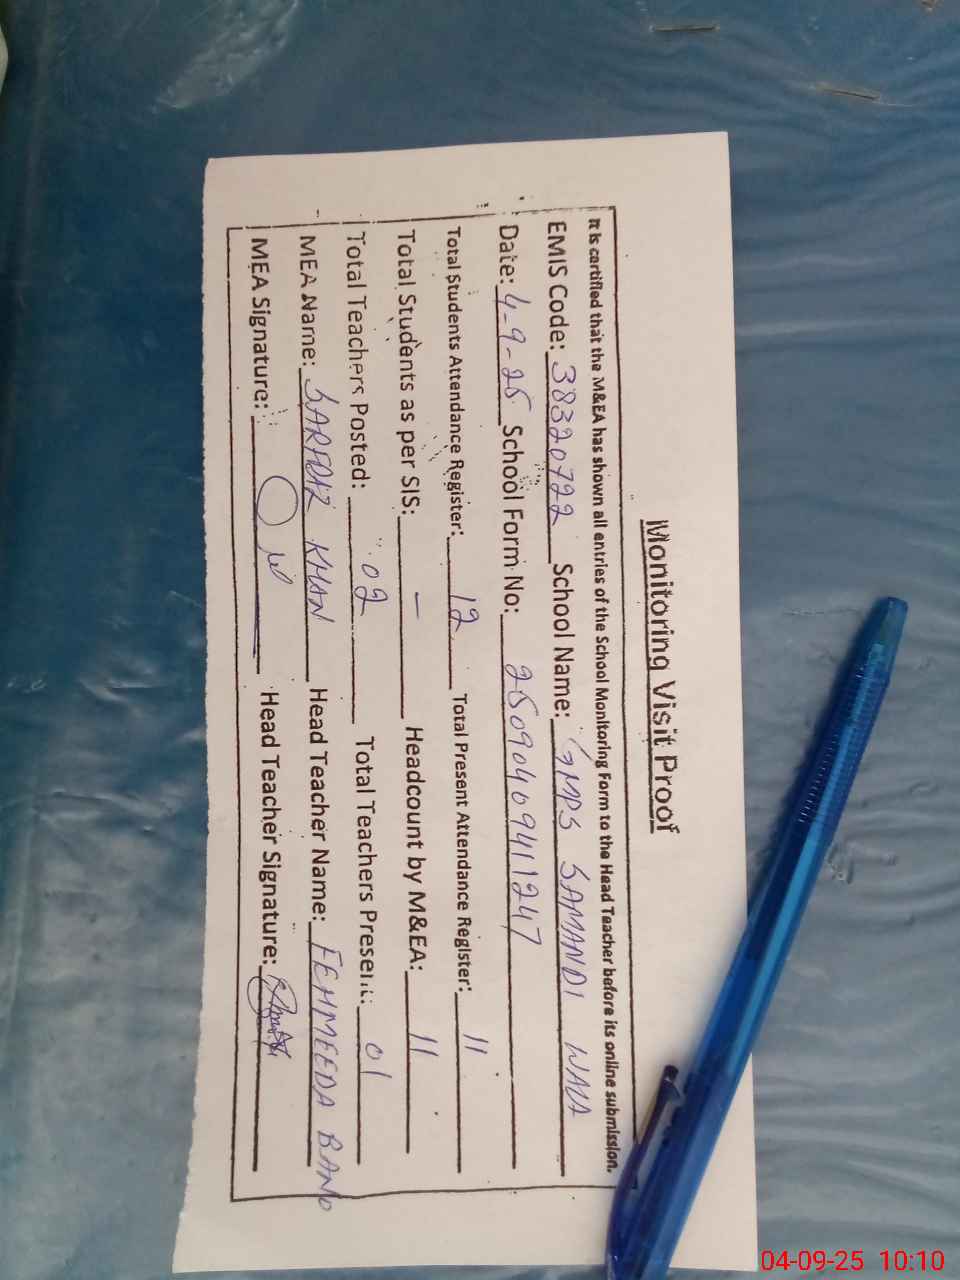 Monitoring Visit Proof
It is certified that the M&EA has shown all entries of the School Monitoring Form to the Head Teacher before its online submission.
EMIS Code: 38320722 School Name: GMPS SAMANDI WALA
Date: 4-9-25 School Form No: 25090409411247
Total Students Attendance Register: 12 Total Present Attendance Register: 11
Total Students as per SIS: – Headcount by M&EA: 11
Total Teachers Posted: 02 Total Teachers Present: 01
MEA Name: SARFRAZ KHAN Head Teacher Name: FEHMEEDA BANO
MEA Signature: Head Teacher Signature:
04-09-25 10:10